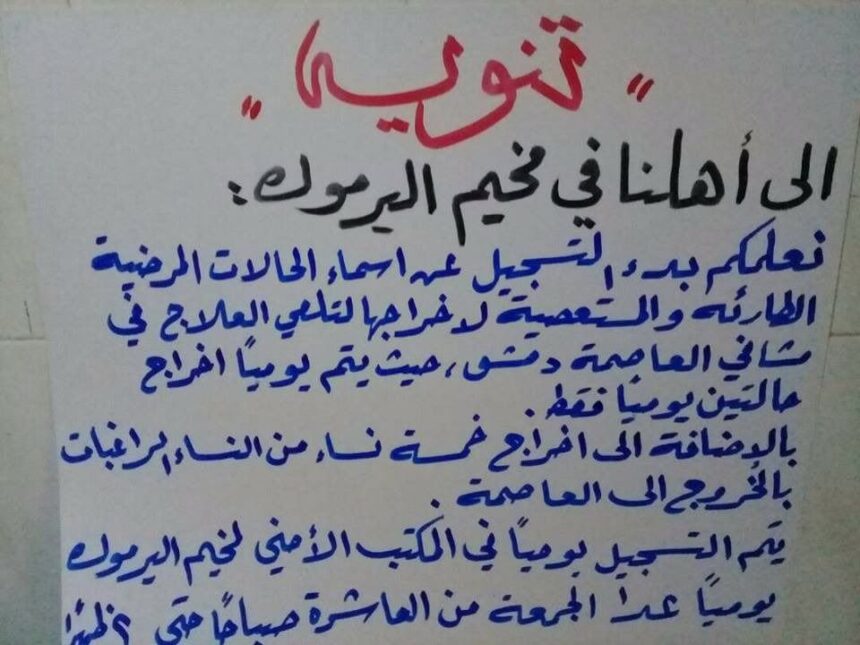 " تنويه "
الى أهلنا في مخيم اليرموك :
نعلمكم بدء التسجيل عن اسماء الحالات المرضية
الطارئه والمستعصية لاخراجها لتلقي العلاج في
مشافي العاصمة دمشق، حيث يتم يومياً اخراج
حالتين يومياً فقط.
بالاضافة الى اخراج خمسة نساء من النساء الراغبات
بالخروج الى العاصمة .
يتم التسجيل يومياً في المكتب الأمني لمخيم اليرموك
يومياً عدا الجمعة من العاشرة صباحاً حتى ٢ ظهراً